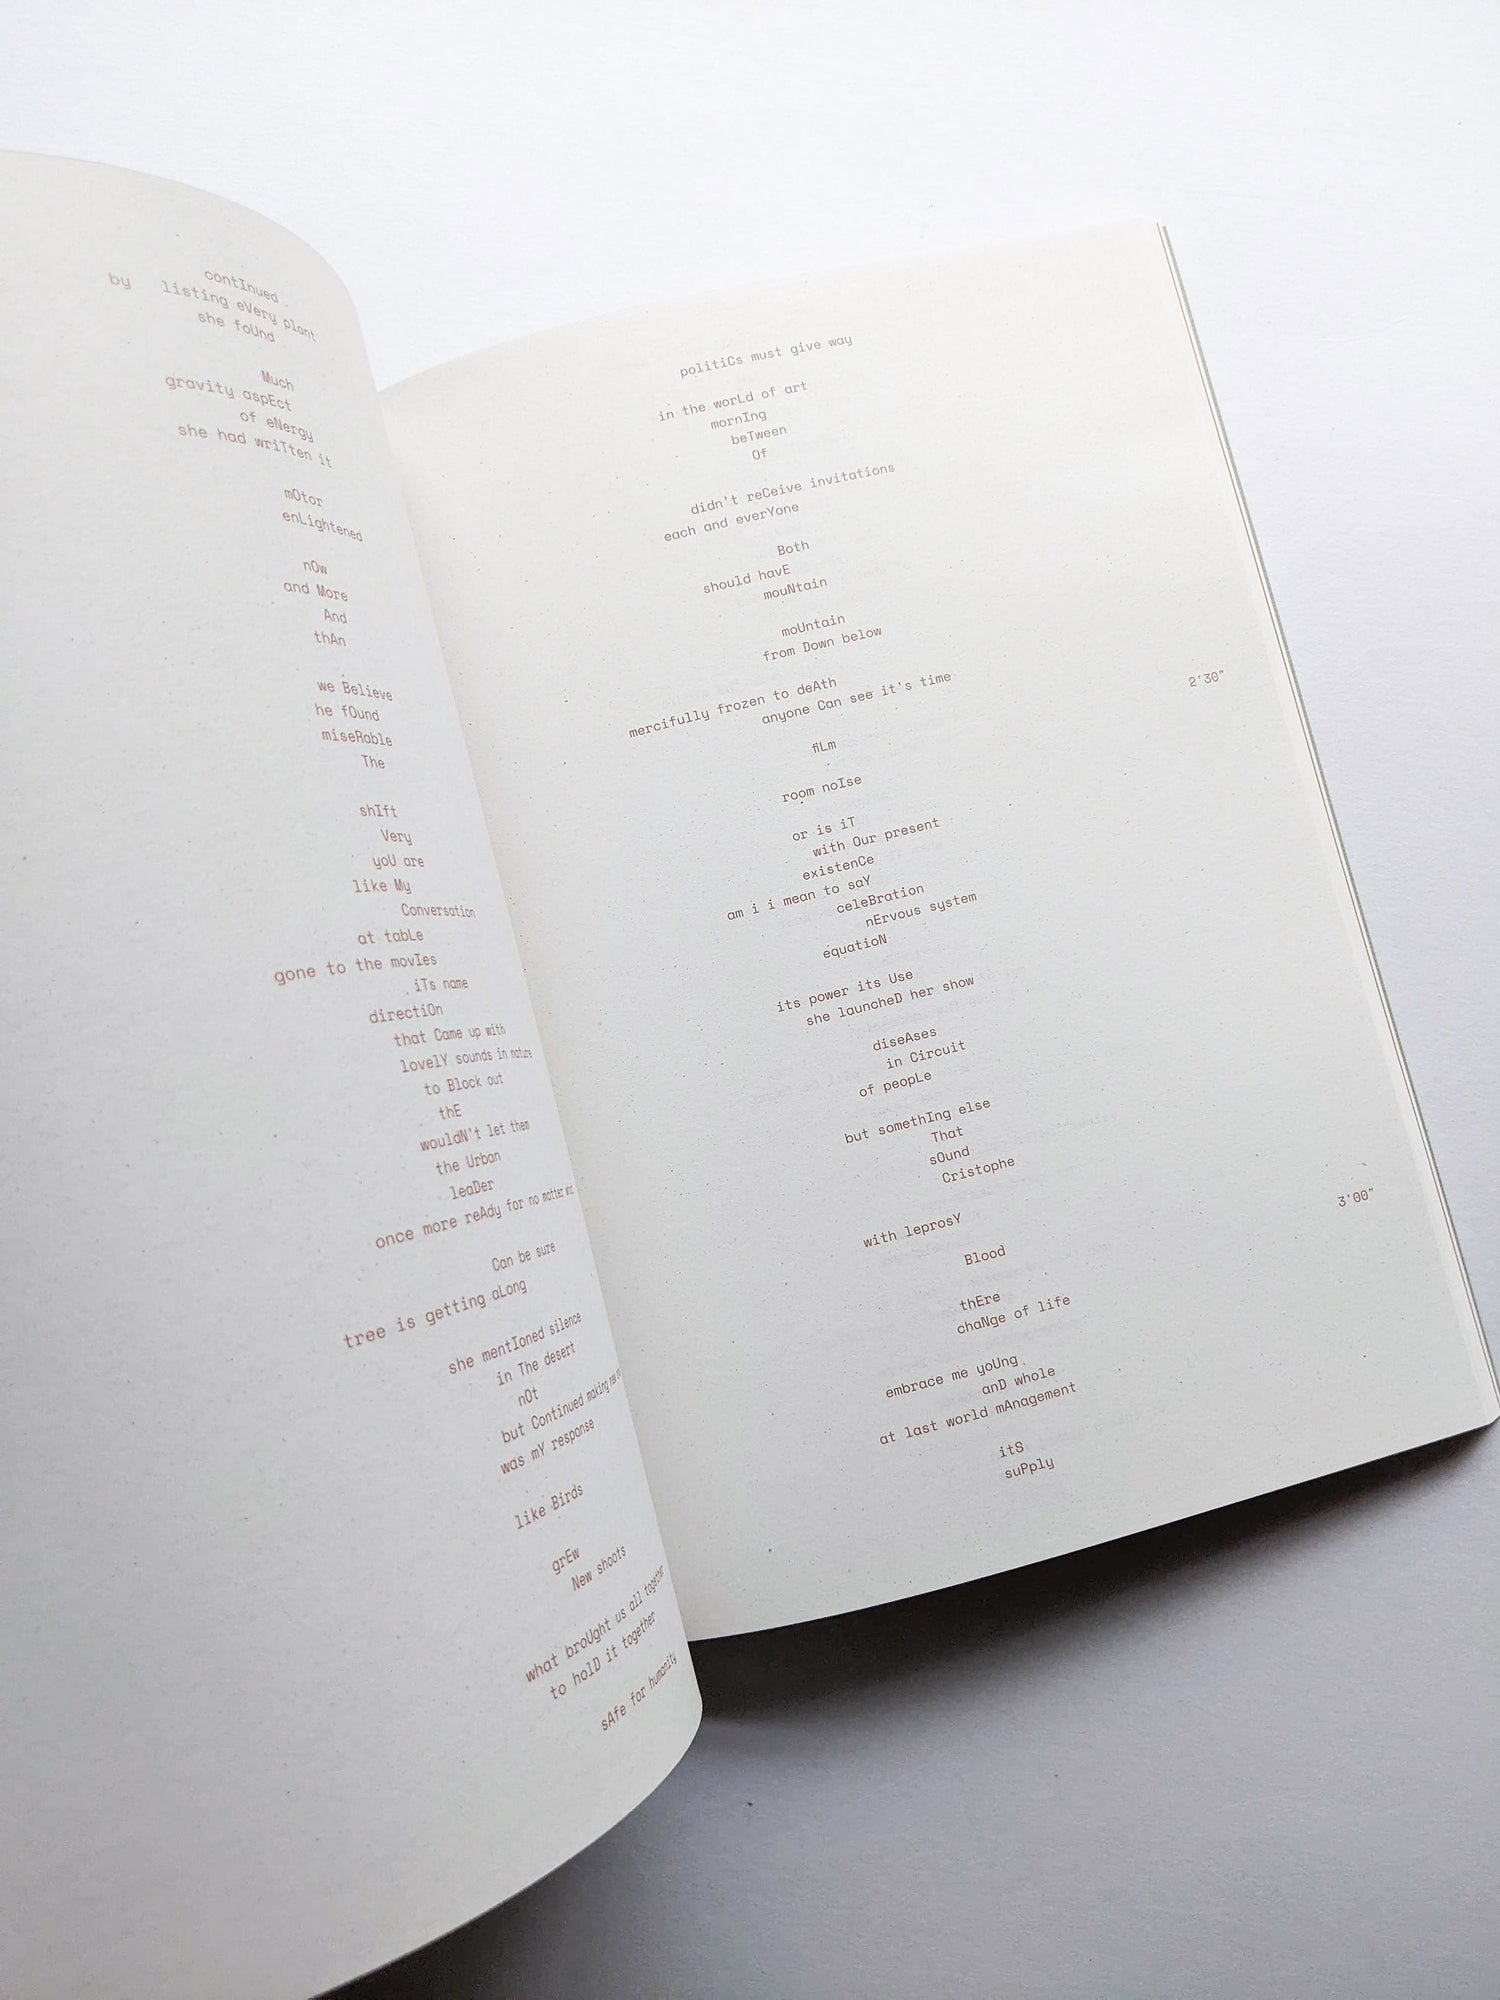 contInued
by listing eVery plant
she foUnd
Much
gravity aspEct
of eNergy
she had wriTten it
mOtor
enLightened
nOw
and More
And
thAn
we Believe
he fOund
miseRable
The
shIft
Very
yoU are
like My
Conversation
at tabLe
gone to the movIes
iTs name
directiOn
that Came up with
lovelY sounds in nature
to Block out
thE
wouldN't let them
the Urban
leaDer
once more reAdy for no matter
Can be sure
tree is getting aLong
she mentIoned silence
in The desert
nOt
but Continued making
was mY response
like Birds
grEw
New shoots
what broUght us all together
to holD it together
sAfe for humanity
politiCs must give way
in the worLd of art
mornIng
beTween
Of
didn't reCeive invitations
each and everYone
Both
should havE
mouNtain
moUntain
from Down below
mercifully frozen to deAth
anyone Can see it's time
2'30"
fiLm
room noIse
or is iT
with Our present
existenCe
am i i mean to saY
celeBration
nErvous system
equatioN
its power its Use
she launcheD her show
diseAses
in Circuit
of peopLe
but somethIng else
That
sOund
Cristophe
3'00"
with leprosY
Blood
thEre
chaNge of life
embrace me yoUng
anD whole
at last world mAnagement
itS
suPply